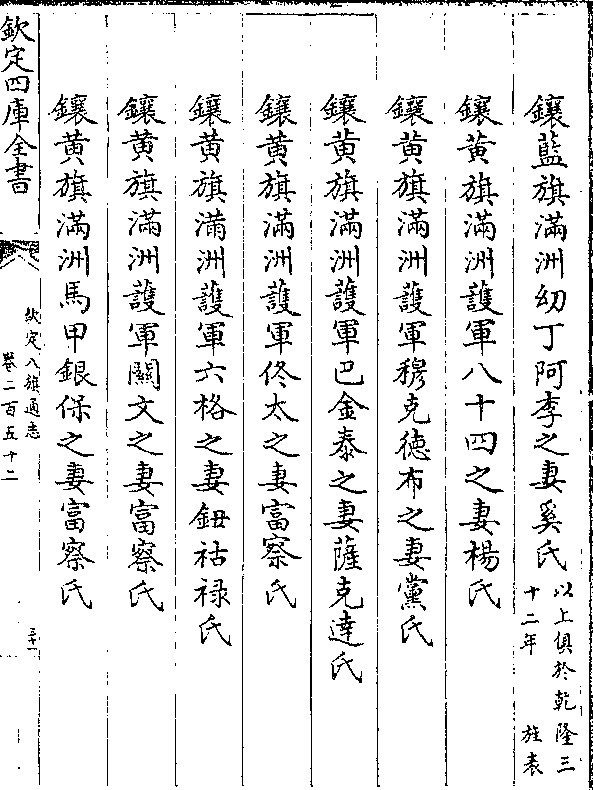 鑲藍旗滿洲幼丁阿李之妻奚氏以上俱於乾隆三十二年旌表
鑲黃旗滿洲護軍八十四之妻楊氏
鑲黃旗滿洲護軍穆克德布之妻黨氏
鑲黃旗滿洲護軍巴金泰之妻薩克達氏
鑲黃旗滿洲護軍佟太之妻富察氏
鑲黃旗滿洲護軍六格之妻鈕祜祿氏
鑲黃旗滿洲護軍關文之妻富察氏
鑲黃旗滿洲馬甲銀保之妻富察氏
欽定四庫全書
欽定八旗通志
卷二百五十二